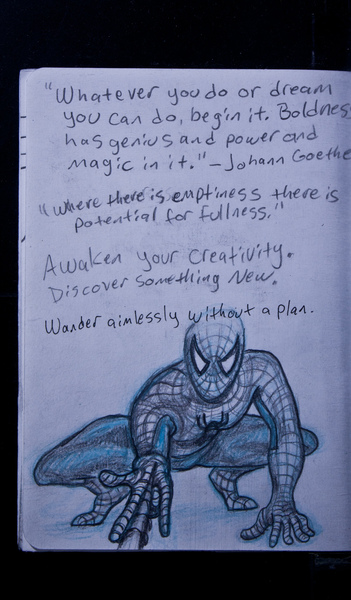 "Whatever you do or dream
you can do, begin it. Boldness
has genius and power and
magic in it." - Johann Goethe
"Where there is emptiness there is
potential for fullness."
Awaken your Creativity.
Discover Something New.
Wander aimlessly without a plan.